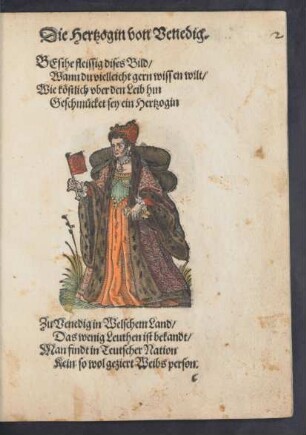 Die Hertzogin von Venedig.
2
BEsihe fleissig dises Bild/
Wann du vielleicht gern wissen wilt/
Wie köstlich vber den Leib hin
Geschmücket sey ein Hertzogin
Zu Venedig in Welschem Land/
Das wenig Leuthen ist bekandt/
Man findt in Teutscher Nation
Kein so wol geziert Weibs person.